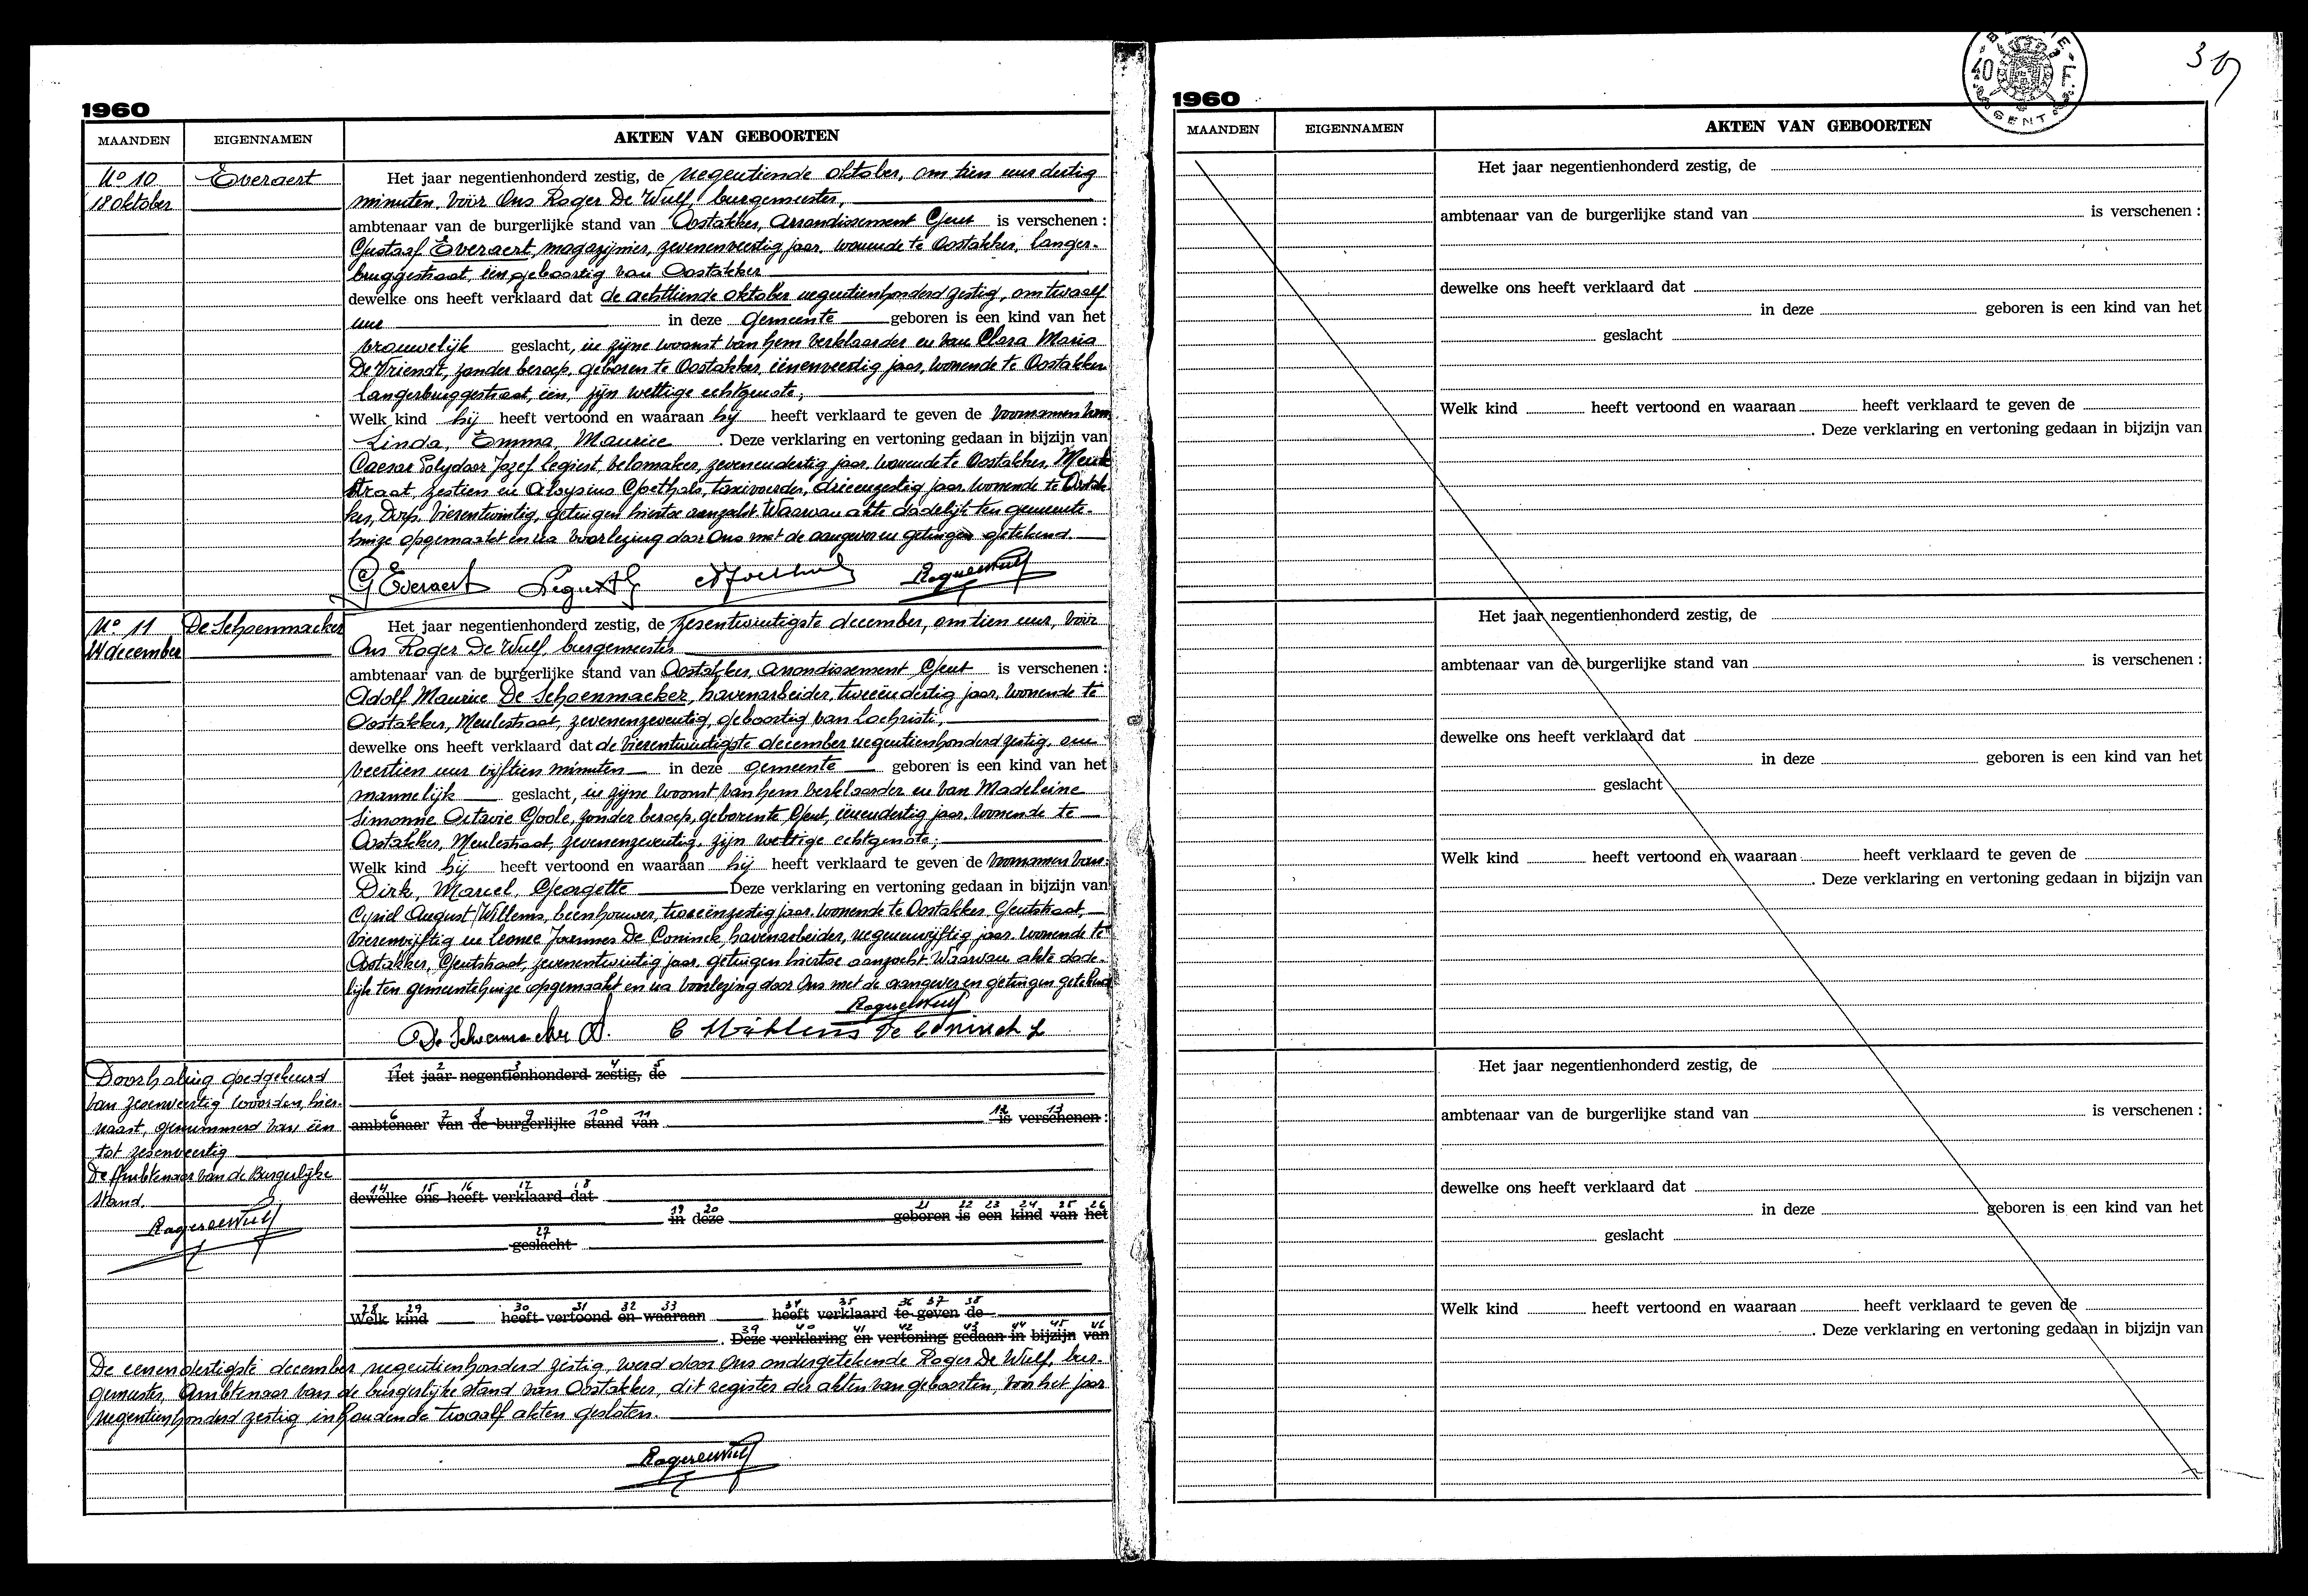 1960
MAANDEN EIGENNAMEN AKTEN VAN GEBOORTEN
No 10 Everaert Het jaar negentienhonderd zestig, de negentiende oktober, om tien uur dertig
18 oktober minuten, vóór Ons Roger De Wulf, burgemeester,
ambtenaar van de burgerlijke stand van Oostakker, Arrondissement Gent is verschenen :
Gustaaf Everaert, magazijnier, zevenenveertig jaar, wonende te Oostakker, Langer-
bruggestraat, één, geboortig van Oostakker
dewelke ons heeft verklaard dat de achttiende oktober negentienhonderd zestig, om twaalf
uur in deze gemeente geboren is een kind van het
vrouwelijk geslacht, in zijne woonst van hem verklaarder en van Clara Maria
De Vriendt, zonder beroep, geboren te Oostakker, éénenveertig jaar, wonende te Oostakker
Langerbruggestraat, één, zijn wettige echtgenote,
Welk kind hij heeft vertoond en waaraan hij heeft verklaard te geven de voornamen van
Linda, Emma, Maurice . Deze verklaring en vertoning gedaan in bijzijn van
Caesar Polydoor Jozef Legiest, zevenendertig jaar, wonende te Oostakker,
straat, zestien en Aloysius Goethals, taxivoerder, drieenzestig jaar, wonende te Oostak-
ker, Dorp, vierentwintig, getuigen hiertoe aanzocht. Waarvan akte dadelijk ten gemeente-
huize opgemaakt en na voorlezing door Ons met de aangever en getuigen getekend.
G Everaert
No 11 De Schoenmacker Het jaar negentienhonderd zestig, de zesentwintigste december, om tien uur, vóór
24 december Ons Roger De Wulf, burgemeester
ambtenaar van de burgerlijke stand van Oostakker, Arrondissement Gent is verschenen :
Adolf Maurice De Schoenmacker, havenarbeider, tweeëndertig jaar, wonende te
Oostakker, Meulestraat, zevenenzeventig, geboortig van Lochristi,
dewelke ons heeft verklaard dat de vierentwintigste december negentienhonderd zestig, om
veertien uur vijftien minuten in deze gemeente geboren is een kind van het
mannelijk geslacht, in zijne woonst van hem verklaarder en van Madeleine
Simonne Octavie Goole, zonder beroep, geboren te Gent, éénendertig jaar, wonende te
Oostakker, Meulestraat, zevenenzeventig, zijn wettige echtgenote;
Welk kind hij heeft vertoond en waaraan hij heeft verklaard te geven de voornamen van:
Dirk, Marcel, Georgette Deze verklaring en vertoning gedaan in bijzijn van
Cyriel August Willems, beenhouwer, tweeënzestig jaar, wonende te Oostakker, Gentstraat,
vierenvijftig en Leonce Joannes De Coninck, havenarbeider, negenenvijftig jaar, wonende te
Oostakker, Gentstraat, zevenentwintig jaar, getuigen hiertoe aanzocht. Waarvan akte dade-
lijk ten gemeentehuize opgemaakt en na voorlezing door Ons met de aangever en getuigen getekend
Roger De Wulf
De Schoenmacker A. C Willems De Coninck L
Doorhaling goedgekeurd
van zesenveertig woorden, hier-
naast, genummerd van één
tot zesenveertig
De Ambtenaar van de Burgerlijke
stand.
Roger De Wulf
1 2 3 4 5
Het jaar negentienhonderd zestig, de
6 7 8 9 10 11 12 13
ambtenaar van de burgerlijke stand van is verschenen :
14 15 16 17 18
dewelke ons heeft verklaard dat
19 20 21 22 23 24 25 26
in deze geboren is een kind van het
27
geslacht
28 29 30 31 32 33 34 35 36 37 38
Welk kind heeft vertoond en waaraan heeft verklaard te geven de
39 40 41 42 43 44 45 46
. Deze verklaring en vertoning gedaan in bijzijn van
De eenendertigste december negentienhonderd zestig, werd door Ons ondergetekende Roger De Wulf, bur-
gemeester, Ambtenaar van de burgerlijke stand van Oostakker, dit register der akten van geboorten, van het jaar
negentienhonderd zestig inhoudende twaalf akten gesloten.
Roger De Wulf
40 F.
GENT
1960
MAANDEN EIGENNAMEN AKTEN VAN GEBOORTEN
Het jaar negentienhonderd zestig, de
ambtenaar van de burgerlijke stand van is verschenen :
dewelke ons heeft verklaard dat
in deze geboren is een kind van het
geslacht
Welk kind heeft vertoond en waaraan heeft verklaard te geven de
. Deze verklaring en vertoning gedaan in bijzijn van
Het jaar negentienhonderd zestig, de
ambtenaar van de burgerlijke stand van is verschenen :
dewelke ons heeft verklaard dat
in deze geboren is een kind van het
geslacht
Welk kind heeft vertoond en waaraan heeft verklaard te geven de
. Deze verklaring en vertoning gedaan in bijzijn van
Het jaar negentienhonderd zestig, de
ambtenaar van de burgerlijke stand van is verschenen :
dewelke ons heeft verklaard dat
in deze geboren is een kind van het
geslacht
Welk kind heeft vertoond en waaraan heeft verklaard te geven de
. Deze verklaring en vertoning gedaan in bijzijn van